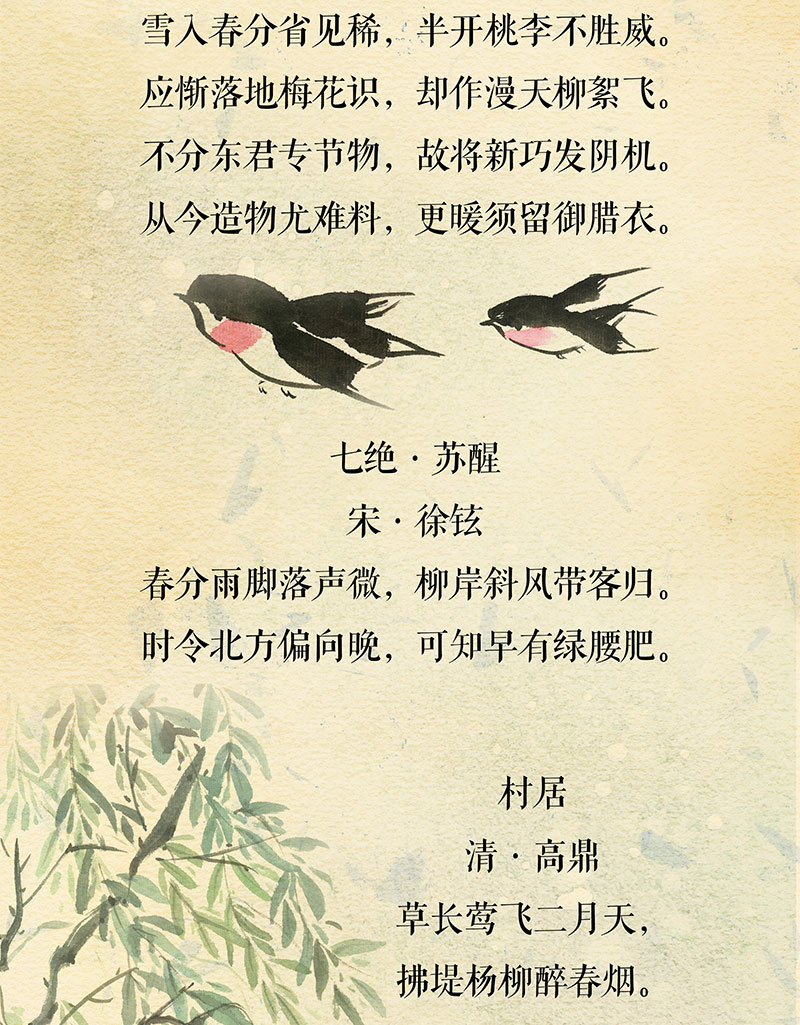 雪入春分省见稀，半开桃李不胜威。
应惭落地梅花识，却作漫天柳絮飞。
不分东君专节物，故将新巧发阴机。
从今造物尤难料，更暖须留御腊衣。
七绝·苏醒
宋·徐铉
春分雨脚落声微，柳岸斜风带客归。
时令北方偏向晚，可知早有绿腰肥。
村居
清·高鼎
草长莺飞二月天，
拂堤杨柳醉春烟。